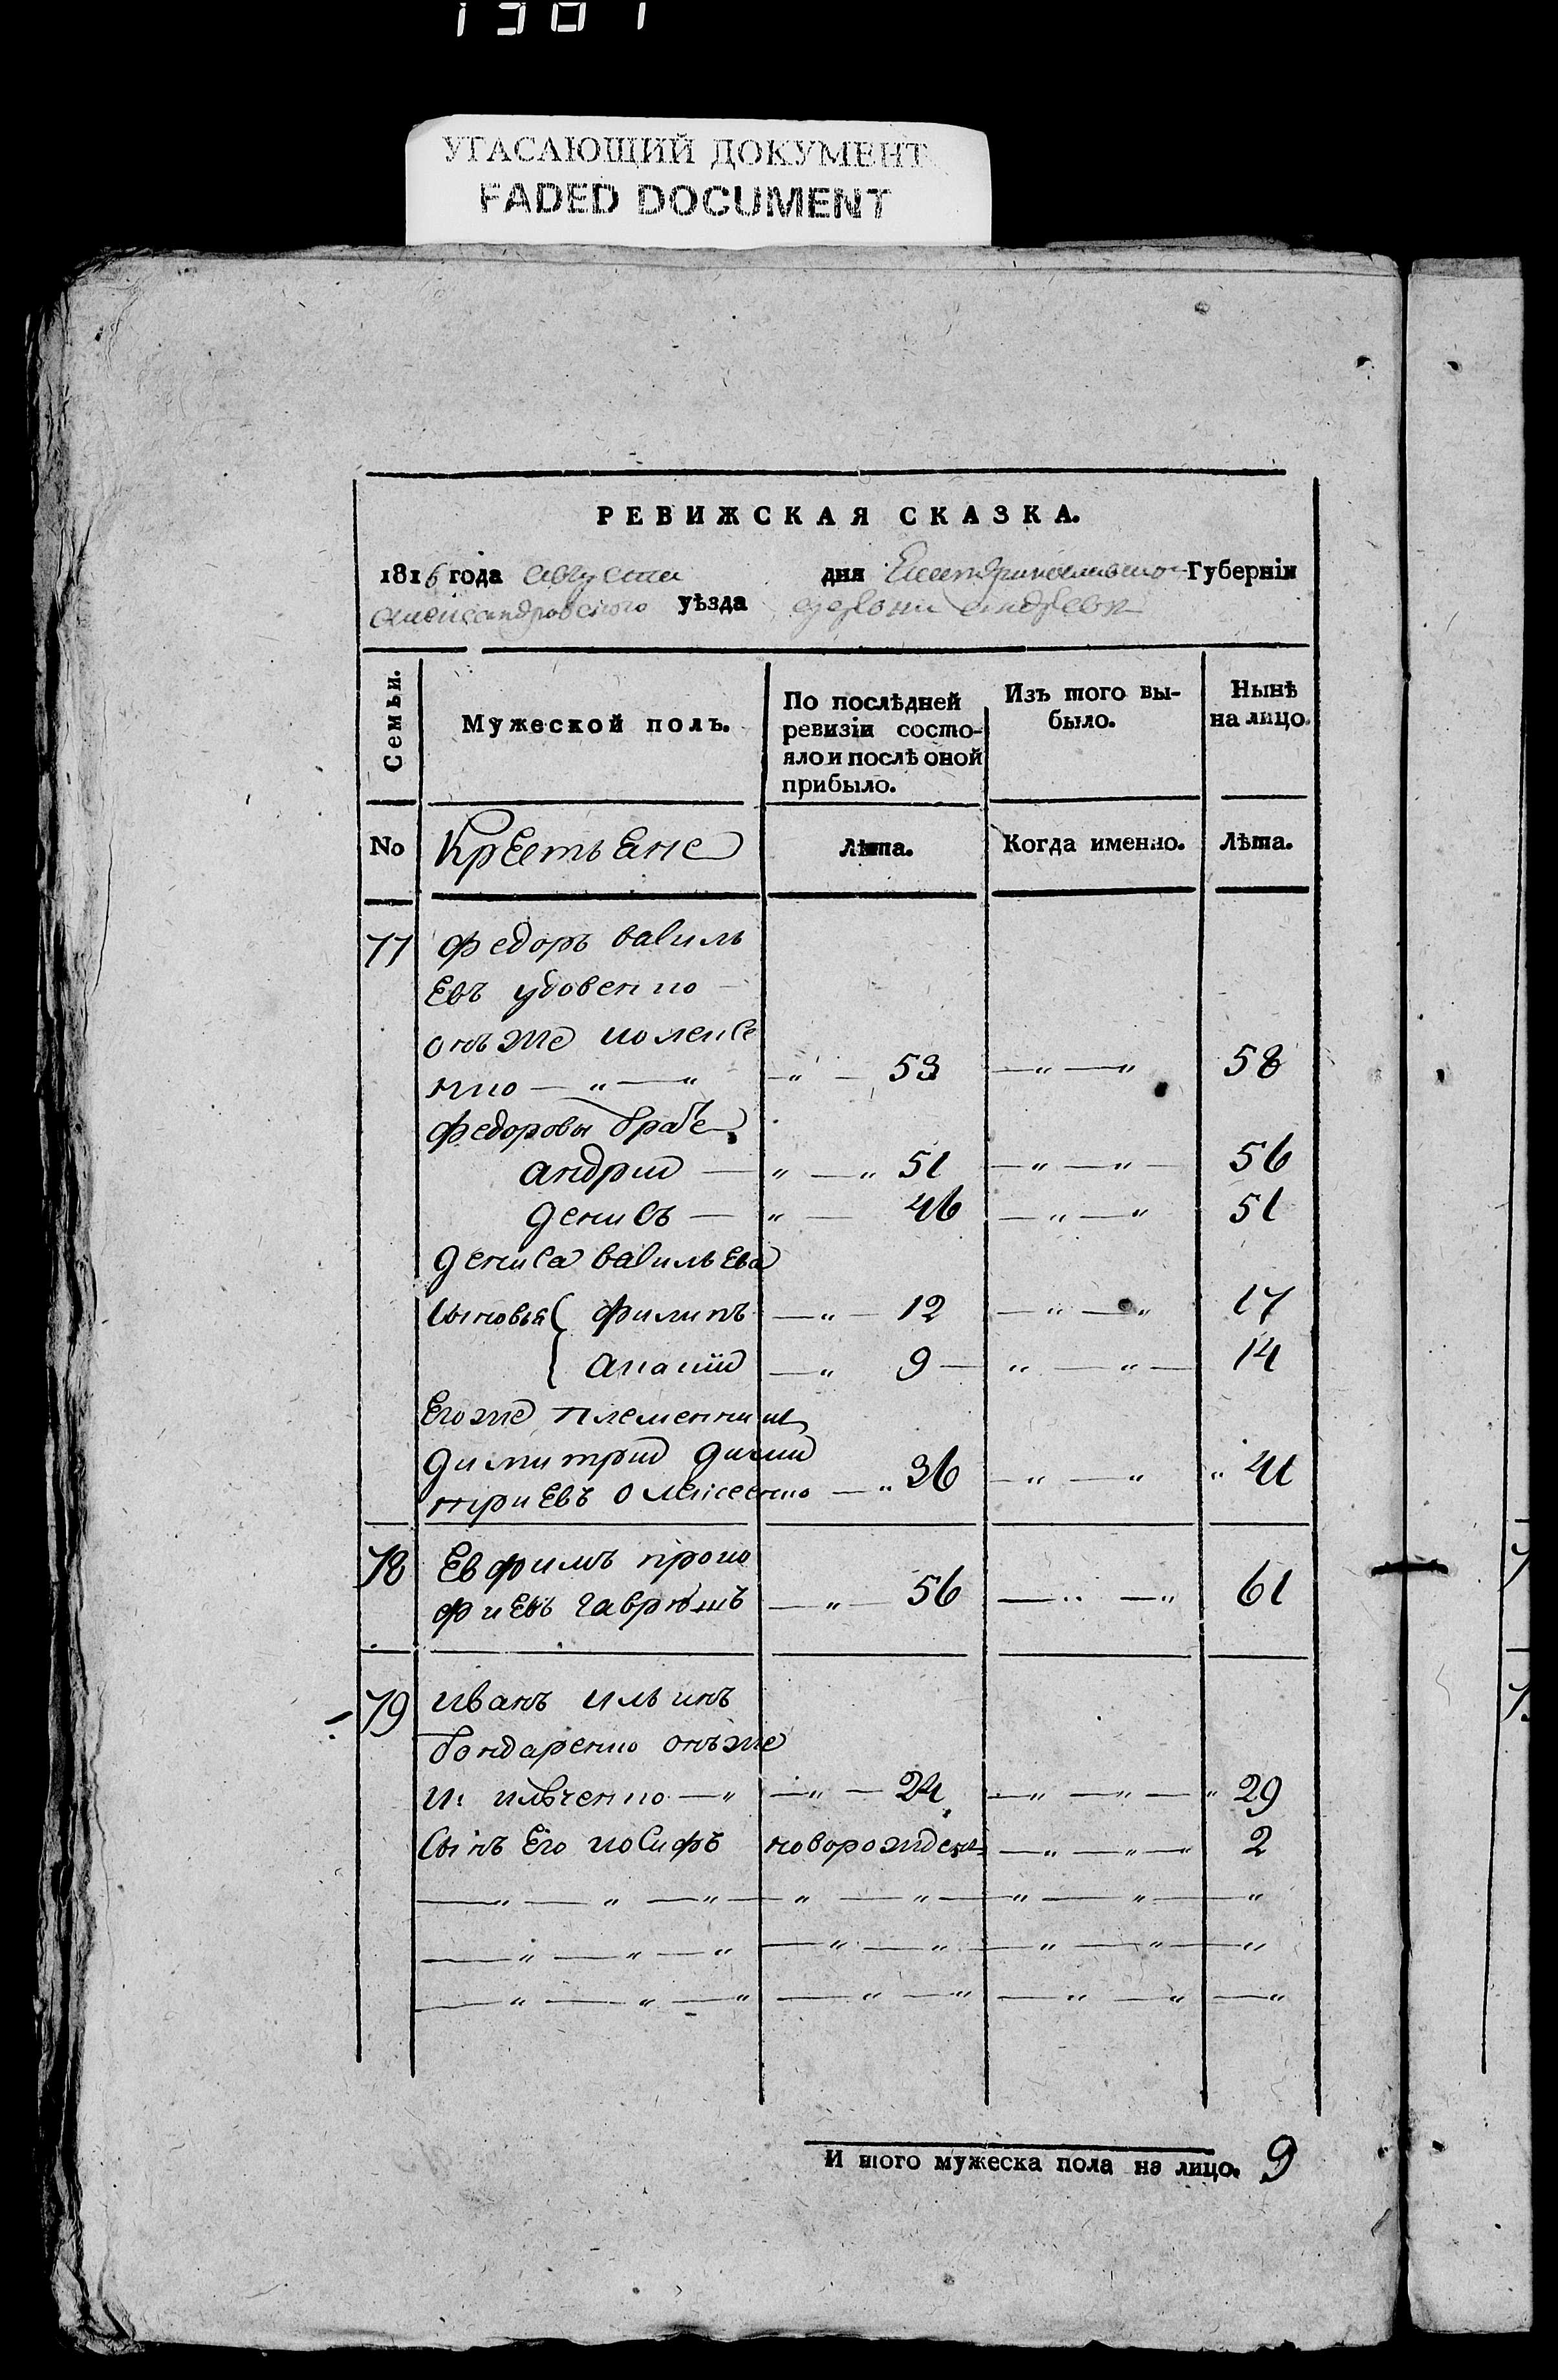 УГАСАЮЩИЙ ДОКУМЕНТ
FADED DOCUMENT
РЕВИЖСКАЯ СКАЗКА.
1816 года августа дня Екатеринославской Губерніи
александровского уѣзда
Семьи.
Мужеской полъ.
По послѣдней
ревизіи состо-
яло и послѣ оной
прибыло.
Изъ того вы-
было.
Нынѣ
на лицо.
No Крестьяне Лѣта. Когда именно. Лѣта.
77 федоръ василь
евъ удовенко
онъ же
нко — „ — „ — „ — 53 — „ — „ 58
федоровы братье
андрій — „ — „ 51 — „ — „ — 56
денисъ — „ — 46 — „ — „ 51
дениса васильева
сыновья { филипъ — „ — 12 — „ — „ 17
ананій — „ 9 — „ — „ — 14
Его же племенник
димитрій дими
тріевъ олексеенко — „ 36 — „ — „ „ 41
78 Евфимъ проко
фиевъ гаврюшъ — „ — 56 — „ — „ 61
79 иванъ ильинъ
бондаренко онъ же
и ильченко — „ — „ — 24 — „ — „ — „ 29
сынъ его иосифъ новорожден — „ — „ — „ 2
И того мужеска пола на лицо. 9